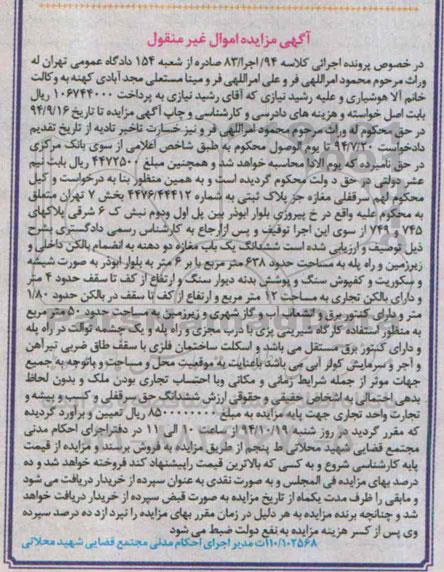 آگهی مزایده اموال غیر منقول
در خصوص پرونده اجرائی کلاسه ۹۴/اجرا/۸۳ صادره از شعبه ۱۵۴ دادگاه عمومی تهران له
وراث مرحوم محمود امراللهی فر و علی امراللهی فر و مینا مستعلی مجد آبادی کهنه به وکالت
خانم آلا هوشیاری و علیه رشید نیازی که آقای رشید نیازی به پرداخت ۱۰۶۷۴۴۰۰۰ ریال
بابت اصل خواسته و هزینه های دادرسی و کارشناسی و چاپ آگهی مزایده تا تاریخ ۹۴/۹/۱۶
در حق محکوم له وراث مرحوم محمود امراللهی فر و نیز خسارت تاخیر تادیه از تاریخ تقدیم
دادخواست ۹۴/۷/۲۰ تا یوم الوصول محکوم به طبق شاخص اعلامی از سوی بانک مرکزی
در حق نامبرده که یوم الادا محاسبه خواهد شد و همچنین مبلغ ۴۴۷۲۵۰۰ ریال بابت نیم
عشر دولتی در حق د ولت محکوم گردیده است و به همین منظور بنا به درخواست و کیل
محکوم لهم سرقفلی مغازه جز پلاک ثبتی به شماره ۴۴۷۶/۴۴۴۱۲ بخش ۷ تهران متعلق
به محکوم علیه واقع در خ پیروزی بلوار ابوذر بین پل اول ودوم نبش ک ۶ شرقی پلاکهای
۷۴۵ و ۷۴۹ از سوی این اجرا توقیف و پس ازارجاع به کارشناس رسمی دادگستری بشرح
ذیل توصیف و ارزیابی شده است ششدانگ یک باب مغازه دو دهنه به انضمام بالکن داخلی و
زیرزمین و راه پله به مساحت حدود ۶۳۸ متر مربع با بر ۶ متر به بلوار ابوذر به صورت شیشه
و سکوریت و کفپوش سنگ و پوشش بدنه دیوار سنگ و ارتفاع از کف تا سقف حدود ۴ متر
و دارای بالکن تجاری به مساحت ۱۲ متر مربع و ارتفاع از کف تا سقف در بالکن حدود ۱/۸۰
متر و دارای کنتور برق و انشعاب آب و گاز شهری و زیرزمین به مساحت حدود ۵۰ متر مربع
به منظور استفاده کارگاه شیرینی پزی با درب مجزی و راه پله و یک چشمه توالت در راه پله
و دارای کنتور برق مستقل می باشد و اسکلت ساختمان فلزی با سقف طاق ضربی تیرآهن
و آجر و سرمایش کولر آبی می باشد باعنایت به موقعیت محل و مساحت و باتوجه به جمیع
جهات موثر از جمله شرایط زمانی و مکانی وبا احتساب تجاری بودن ملک و بدون لحاظ
بدهی احتمالی به اشخاص حقیقی و حقوقی ارزش ششدانگ حق سرقفلی و کسب و پیشه و
تجارت واحد تجاری جهت پایه مزایده به مبلغ ریال تعیین و برآورد گردیده
که مقرر گردید در روز شنبه ۹۴/۱۰/۱۹ از ساعت ۱۰ الی ۱۱ در دفتراجرای احکام مدنی
مجتمع قضایی شهید محلاتی ط پنجم از طریق مزایده به فروش برسند و مزایده از قیمت
پایه کارشناسی شروع و به کسی که بالاترین قیمت راپیشنهاد کند فروخته خواهد شد و ده
درصد بهای مزایده فی المجلس و به صورت نقدی به عنوان سپرده از خریدار دریافت می شود
و مابقی را ظرف مدت یکماه از تاریخ مزایده به صورت قبض سپرده از خریدار دریافت خواهد
شد و چنانچه برنده مزایده به هر دلیل در زمان مقرر بهای مزایده را نپرد ازد ده درصد سپرده
وی پس از کسر هزینه مزایده به نفع دولت ضبط می شود
۱۱۰/۱۰۲۵۶۸/ت مدیر اجرای احکام مدنی مجتمع قضایی شهید محلاتی